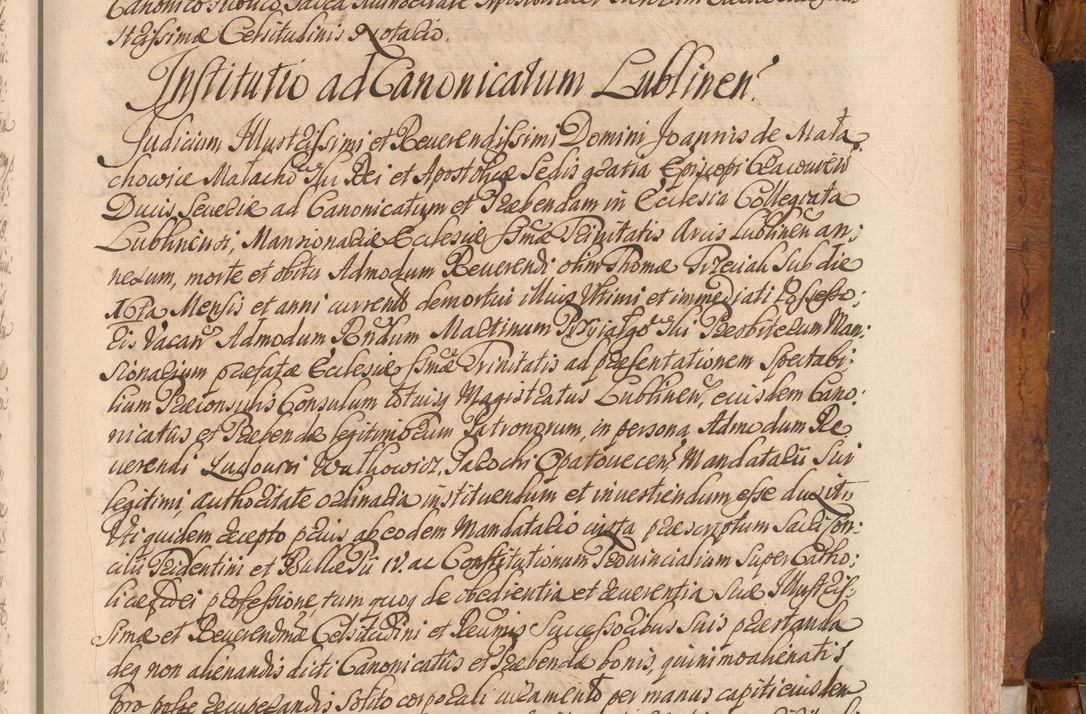 stessimæ Celsitudinis Notario.
Institutio ad Canonicatum Lublinen̄.
Judicium Illustrissimi et Reverendissimi Domini Joannis de Mała
chowice Małachō Jhi Dei et Apostolicæ Sedis gratia Episcopi Cracovien̄
Ducis Severiæ ad Canonicatum et Præbendam in Ecclesia Collegiata
Lublinensi, Mansionariæ Ecclesiæ Ssmæ Trinitatis Arcis Lublinen̄ an:
nexum, morte et obitu Admodum Reverendi olim Thomæ Trzeciak sub die
Mensis et anni currentis demortui illius Ultimi et immediati Possesso:
ris vacan̄ Admodum Rndum Martinum Jhi Præsbiterum Man:
sionarium præfatæ Ecclesiæ Ssmæ Trinitatis ad præsentationem Spectabi:
lium Præconsulis Consulum totiusq Magistratus Lublinen̄, eiusdem Cano:
nicatus et Præbendæ legitimorum Patronorum, in persona Admodum Re
verendi Ludovici Parochi Opatovecen̄ Mandatarii sui
legitimi authoritate ordinaria instituendum et investiendum esse duxit.
Uti quidem recepto prius ab eodem Mandatario iuxta præscriptum Sacri Con:
cilii Tridentini et Bullæ Pii IV. ac Constitutionum Provincialium super Catho:
licæ fidei professione tum quoq de obedientia et reverentia suæ Illustris:
simæ et Reverendmæ Celsitudini et Successoribus suis præstanda
deq non alienandis dicti Canonicatus et Præbendæ bonis, quinimo alienatis
pro posse recuperandis solito corporali iuramento per manus capiti eiusdem